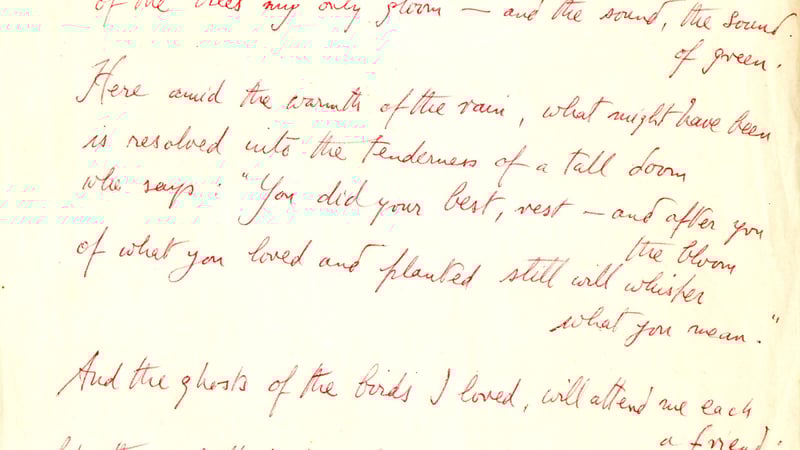 of the trees my only gloom — and the sound, the sound
of green.
Here amid the warmth of the rain, what might have been
is resolved into the tenderness of a tall doom
who says: "You did your best, rest — and after you
the bloom
of what you loved and planted still will whisper
what you mean."
And the ghosts of the birds I loved, will attend me each
a friend;